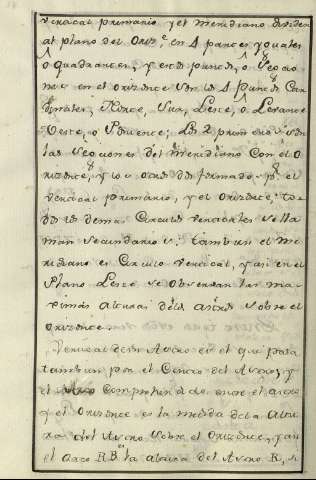 vertical primario y el Meridiano dividen
al plano del Oriz.e en 4 partes yguales
o quadrantes, y estos puntos, o Secçio
nes en el orizonte son los 4 puntos Car
dinales, Norte, Sur, Leste, o Levante
Oeste, o Poniente; Los 2 primeros son
las Secçiones del Meridiano Con el O
rizonte, y los otros dos formados pr. el
vertical primario, y el Orizonte; to
dos los demas Circulos verticales se lla
man Secundarios: tambien el Me
ridiano es Circulo vertical, y asi en el
Plano se observan las ma
ximas alturas de los astros sobre el
Orizonte.
Vertical de un Astro es el que pasa
tambien por el Centro del Astro; y
el Comprehendido entre el astro
y el Orizonte es la medida de la Altu
ra del Astro sobre el Orizonte, y asi
el Arco RB es la altura del Astro R, si